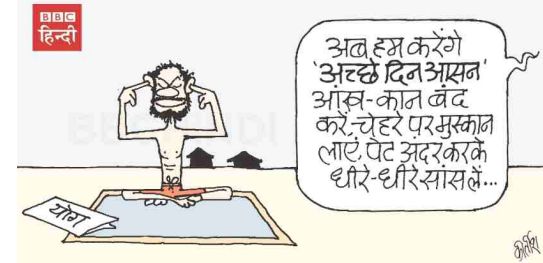 BBC
हिन्दी
अब हम करेंगे
'अच्छे दिन आसन'
आंख-कान बंद
करें, चेहरे पर मुस्कान
लाएं, पेट अंदर करके
धीरे-धीरे सांस लें...
योग
कीर्तीश